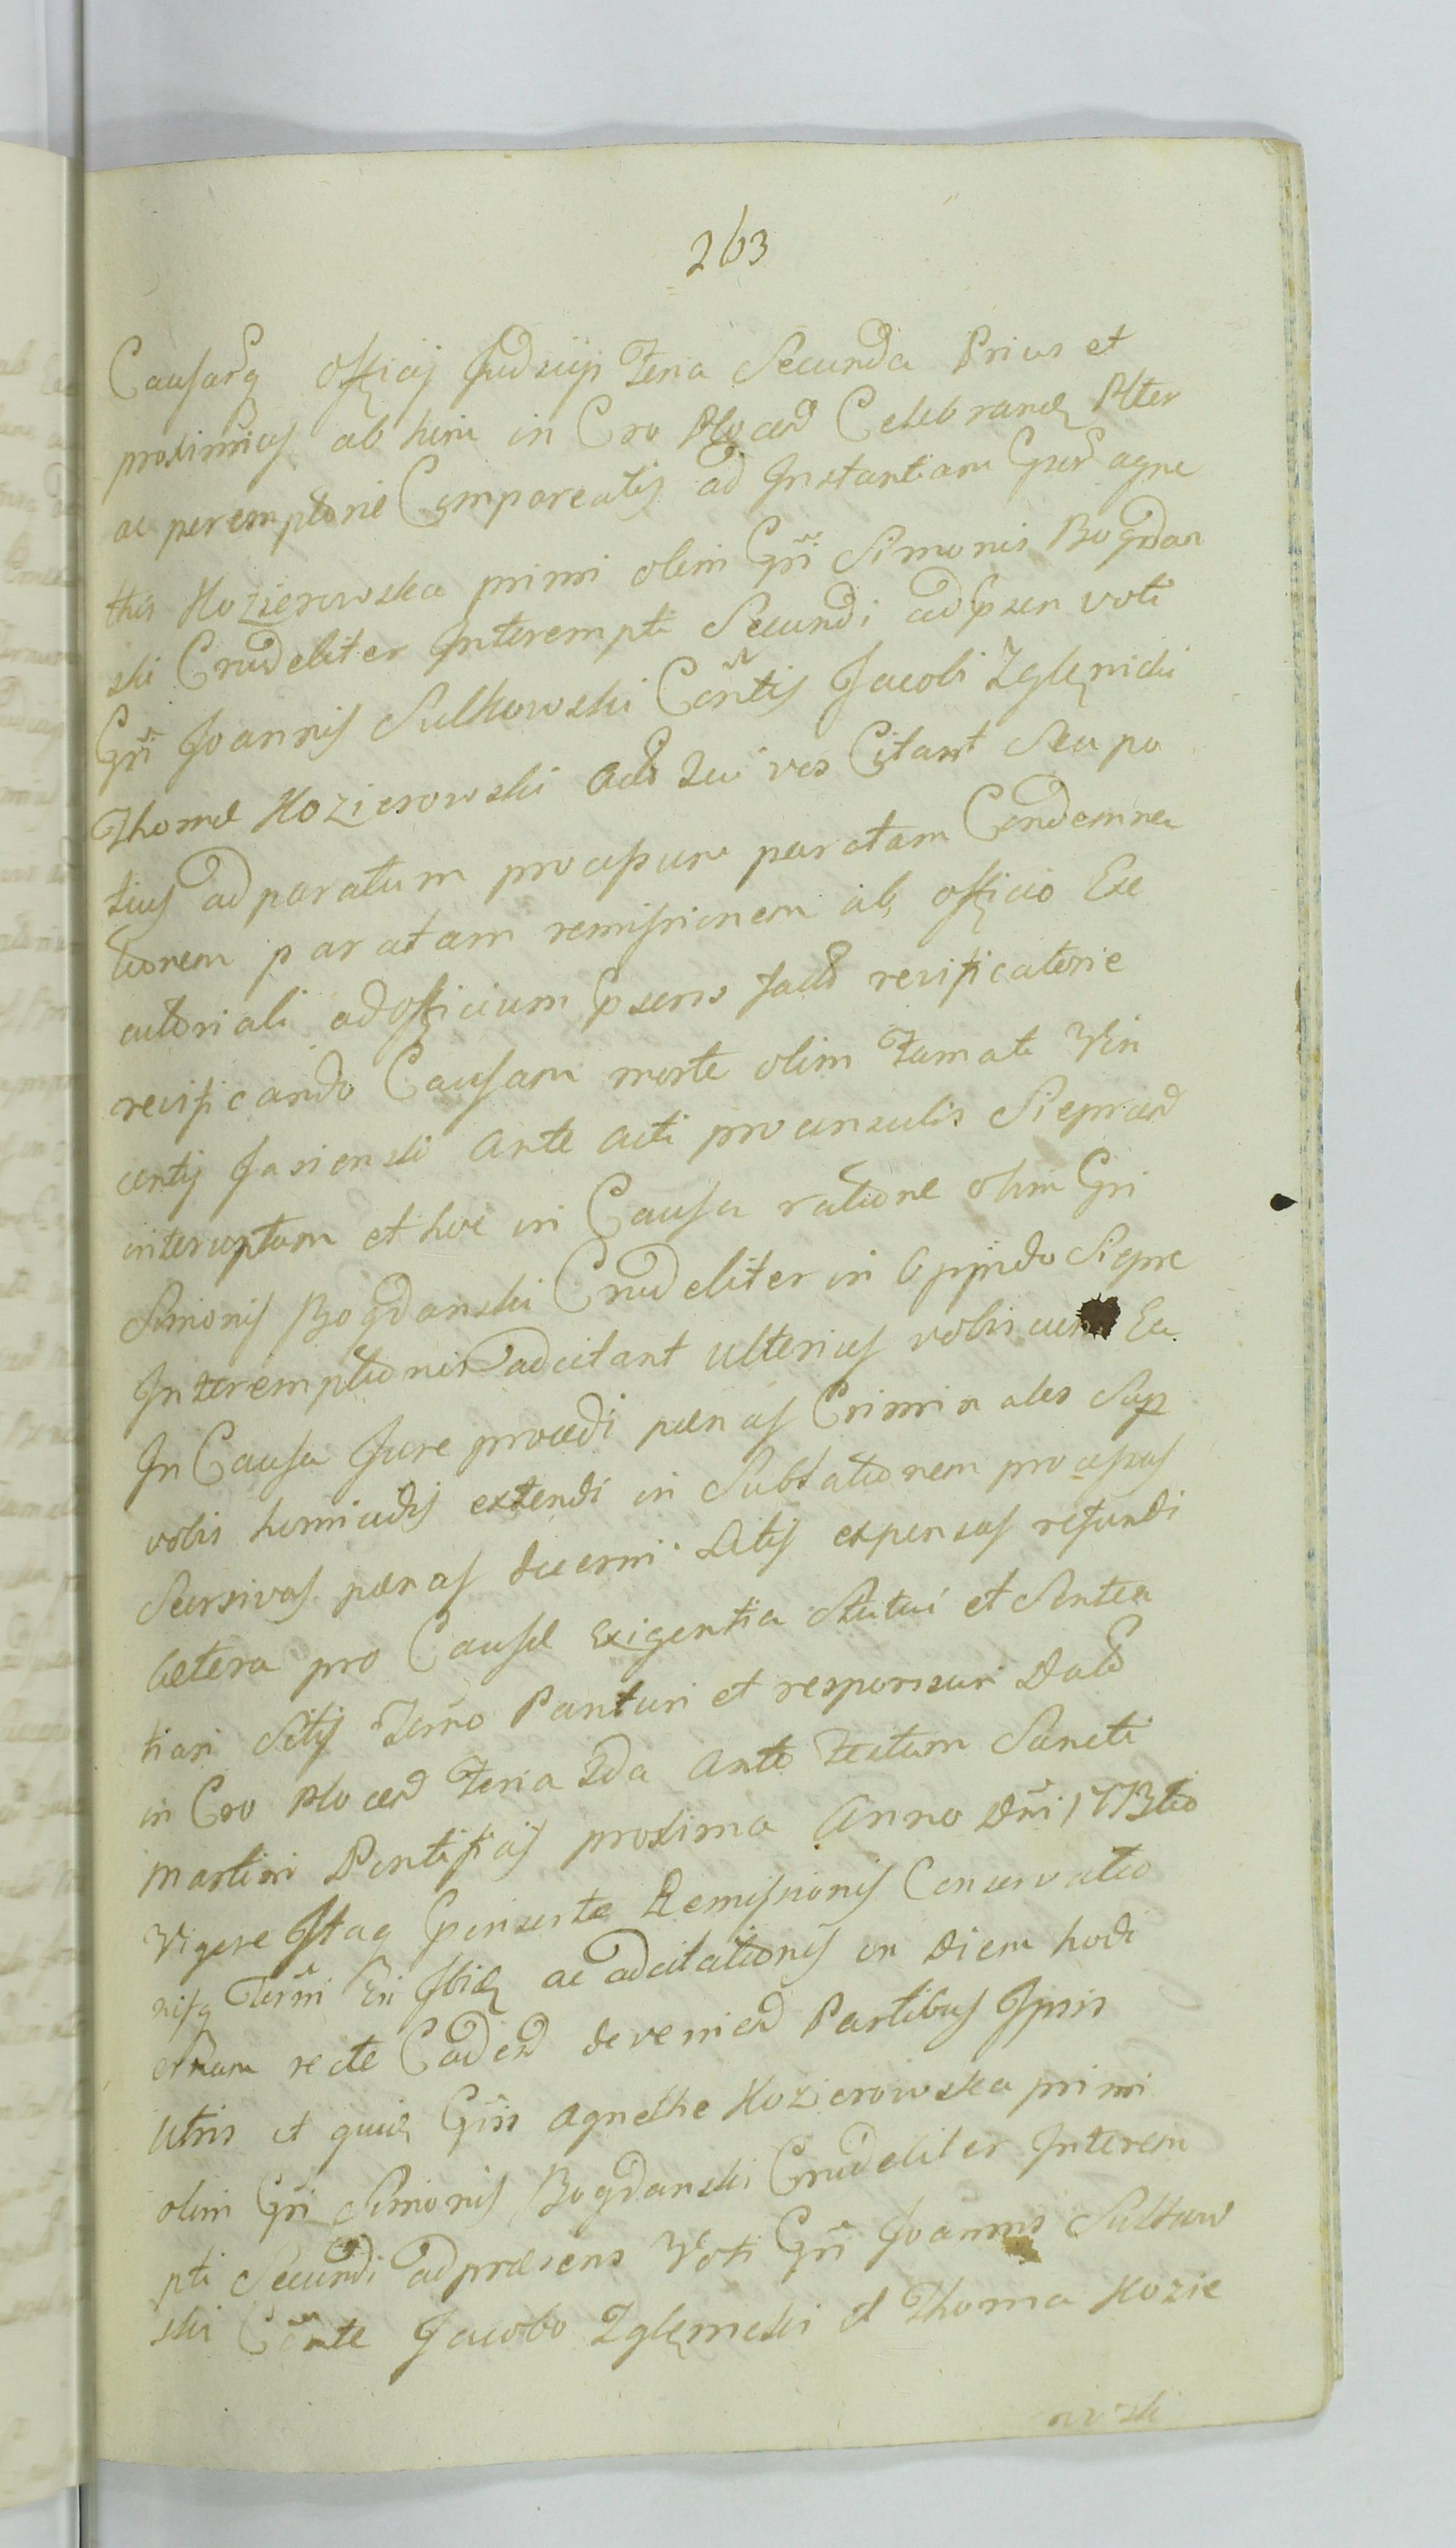 263
Causarq officij Judicijq Feria Secunda Prius et
proximius ab hinc in Cro Plocen Celebrand Alter
ac peremptorie Compareatis ad Instantiam Gser Agne
this Kozierowska primi olim Gsi Simonis Bogdan
ski Crudeliter Interempti Secundi adpsen voti
Gsi Joannis Sulkowski Cortis Jacobi Zglenicki
Thomæ Kozierowski Act Qui vos Citant Seu po
tius ad paratum processum paratam Condemna
tionem paratam remissionem ab officio Exe
cutoriali ad officium psens facto reivificatorie
reivificando Causam morte olim Famati Vin
centij Jasienski ante acti proconsulis Sieprcen
interuptam et hoc in Causa ratione olim Gsi
Simonis Bogdanski Crudeliter in Oppido Siepre
Interemptionis adcitant ulterius vobiscum Ea
In Causa Jure procedi pænas Criminales Sup
vobis homicidis extendi in Sublationem processus
Scarsivas pænas decerni Litis expensas refundi
Cætera pro Causæ Exigentia Statui et Senten
tiari Sitis Termo Parituri et responsuri Dat
in Cro Plocen Feria 2da ante Festum Sancti
Martini Pontificis proxima Anno Dni 1773tio
Vigore Itaq psinserte Remissionis Conservatio
nisq Termi En Ibid ac adcitationis in Diem hodi
ernam recte Caden devenien Partibus Ipsis
Utris et quid Gsis Agnethe Kozierowska primi
olim Gsi Simonis Bogdanski Crudeliter Interem
pti Secundi ad præsens Voti Gsi Joannis Sulkow
ski Corte Jacobo Zglenicki et Thoma Kozie
rowski